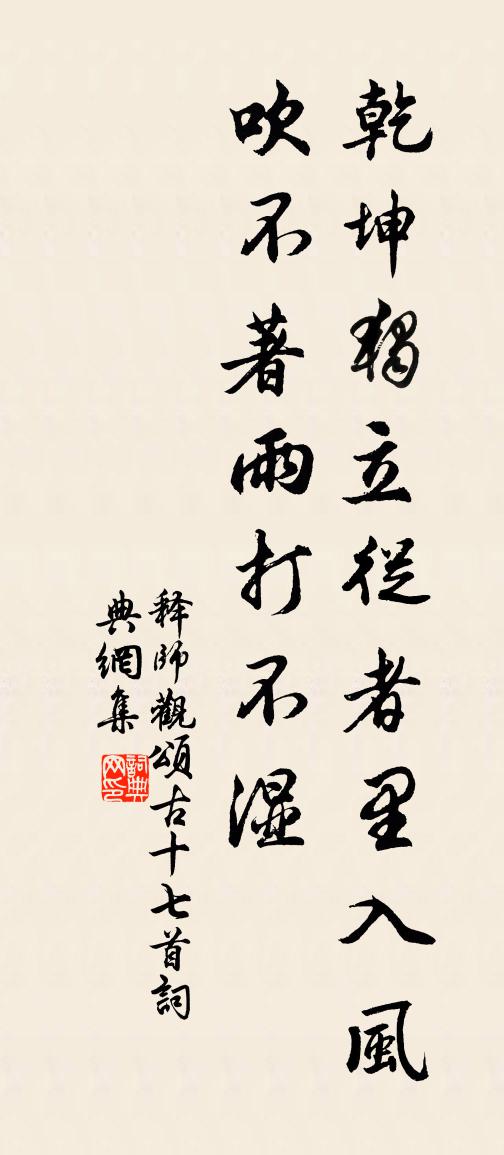 乾坤獨立從者里入風
吹不著雨打不濕
释師觀頌古十七首詞
典網集
詞典网印